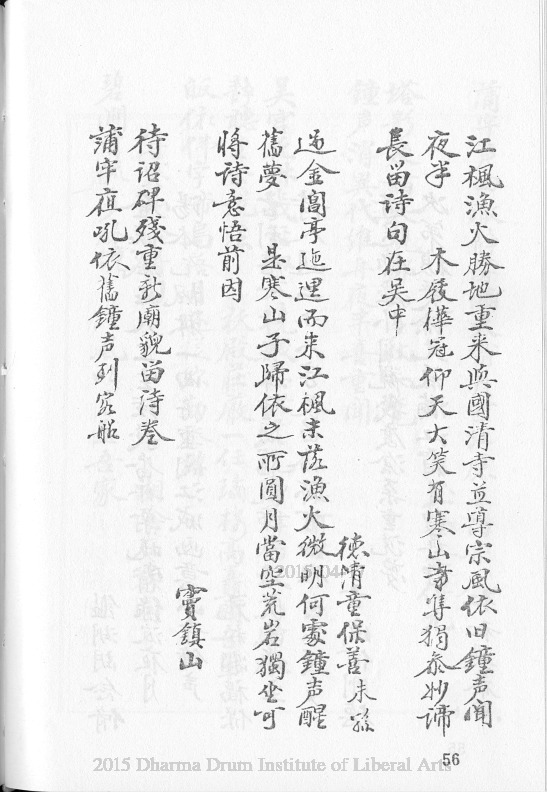 江楓漁火勝地重来與國清寺並尊宗風依旧鐘声聞
夜半 木屐樺冠仰天大笑有寒山奇隼獨參妙諦
長留詩句在吴中
德清童保善未
過金閶亭迤邐而来江楓未落漁火微明何處鐘声醒
舊夢 是寒山子歸依之所圓月當空荒岩獨坐可
將詩意悟前因
竇鎮山
待詔碑殘重新廟貌留诗卷
蒲牢夜吼依舊鐘声到客船
2015
56
2015 Dharma Drum Institute of Liberal Arts